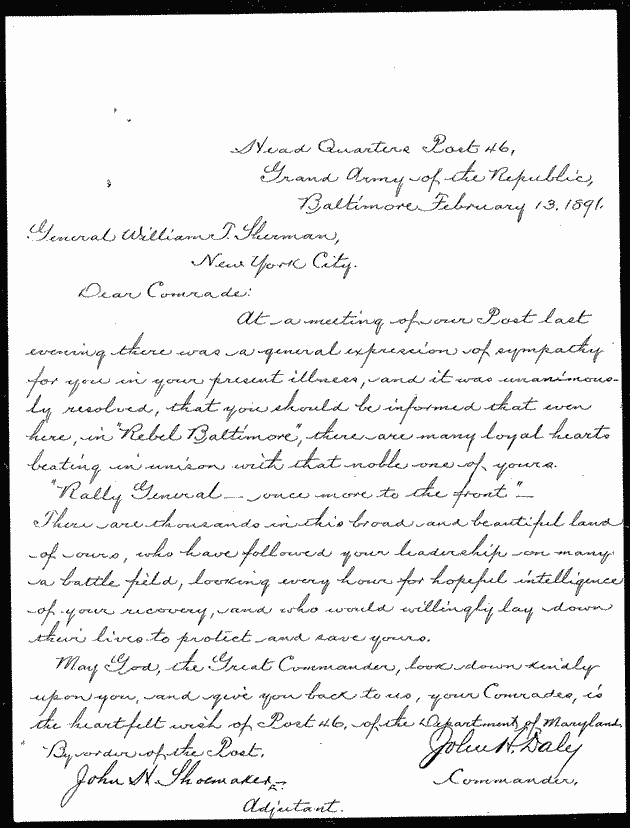 Head Quarters Post 46,
Grand Army of the Republic,
Baltimore February 13. 1891.
General William T. Sherman,
New York City.
Dear Comrade:
At a meeting of our Post last
evening there was a general expression of sympathy
for you in your present illness, and it was unanimous-
ly resolved, that you should be informed that even
here, in "Rebel Baltimore", there are many loyal hearts
beating in unison with that noble one of yours.
"Rally General — once more to the front" —
There are thousands in this broad and beautiful land
of ours, who have followed your leadership on many
a battle field, looking every hour for hopeful intelligence
of your recovery, and who would willingly lay down
their lives to protect and save yours.
May God, the Great Commander, look down kindly
upon you, and give you back to us, your Comrades, is
the heartfelt wish of Post 46, of the Department of Maryland.
By order of the Post.
John H. Daly
John H. Shoemaker
Commander.
Adjutant.